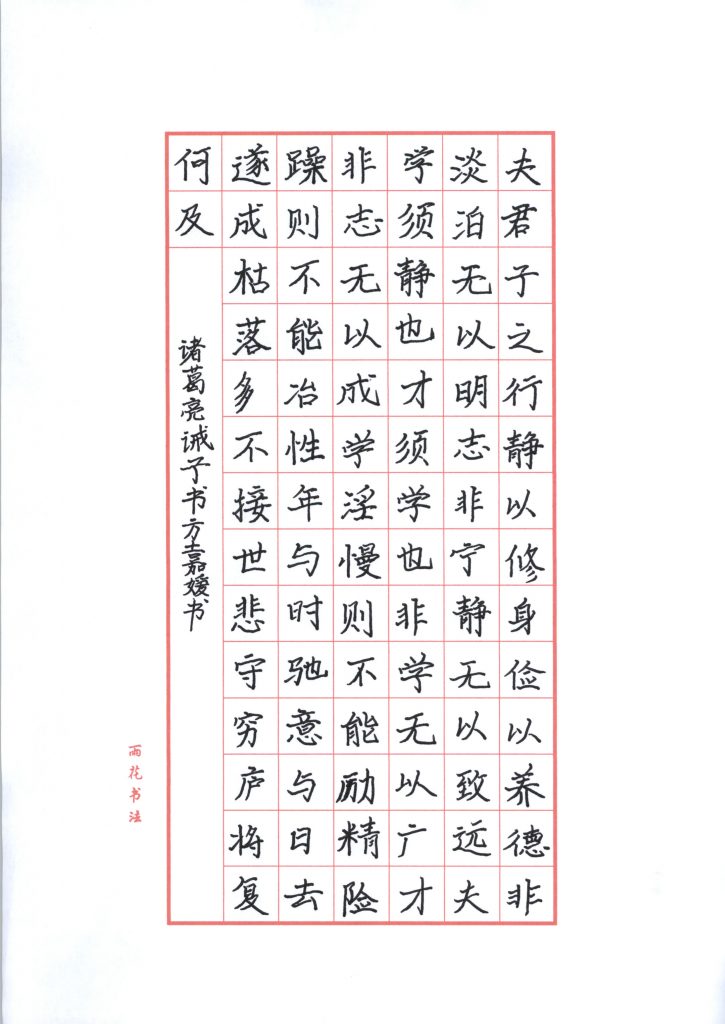 夫君子之行静以修身俭以养德非
淡泊无以明志非宁静无以致远夫
学须静也才须学也非学无以广才
非志无以成学淫慢则不能励精险
躁则不能冶性年与时驰意与日去
遂成枯落多不接世悲守穷庐将复
何及
诸葛亮诫子书方嘉媛书
雨花书法